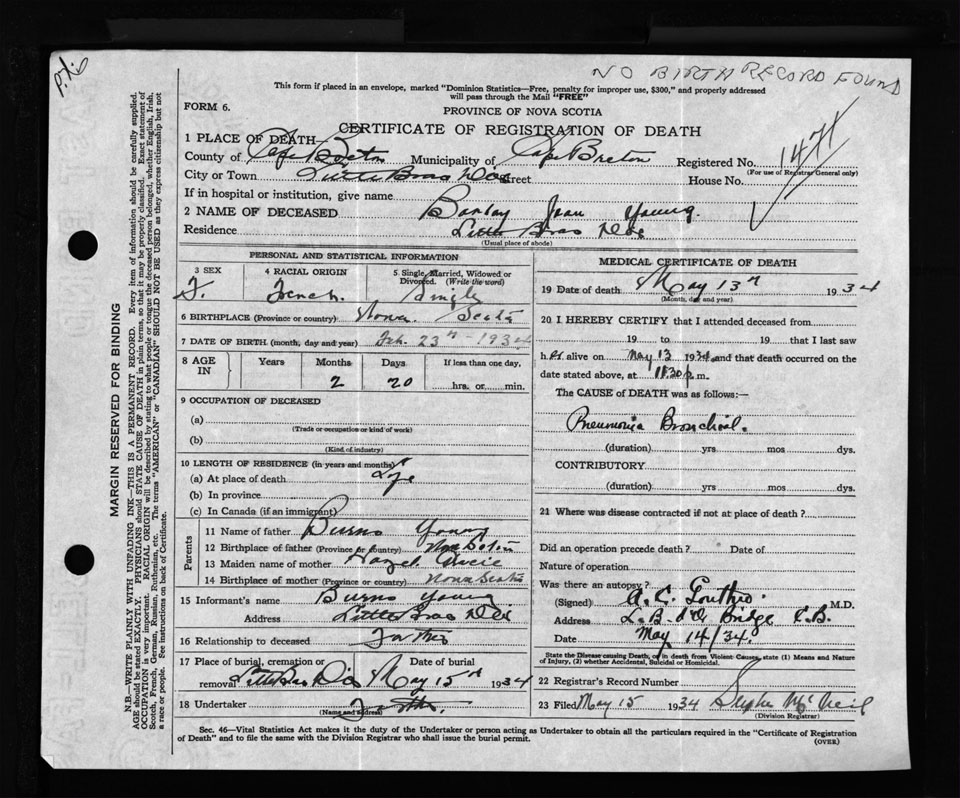 NO BIRTH RECORD FOUND
This form if placed in an envelope, marked "Dominion Statistics—Free, penalty for improper use, $300," and properly addressed
will pass through the Mail "FREE"
FORM 6.
PROVINCE OF NOVA SCOTIA
CERTIFICATE OF REGISTRATION OF DEATH
1 PLACE OF DEATH—
County of Cape Breton Municipality of Cape Breton Registered No. 1471
(For use of Registrar General only)
City or Town Little Bras Dor Street House No.
If in hospital or institution, give name
2 NAME OF DECEASED Jean Young.
Residence Little Bras Dor
(Usual place of abode)
PERSONAL AND STATISTICAL INFORMATION
3 SEX 4 RACIAL ORIGIN 5 Single, Married, Widowed or Divorced. (Write the word)
F. French. Single
6 BIRTHPLACE (Province or country) Nova Scotia
7 DATE OF BIRTH (month, day and year) Feb. 23rd - 1934
8 AGE IN Years Months Days If less than one day,
2 20 hrs. or min.
9 OCCUPATION OF DECEASED
(a)
(Trade or occupation or kind of work)
(b)
(Kind of industry)
10 LENGTH OF RESIDENCE (in years and months)
(a) At place of death Life
(b) In province
(c) In Canada (if an immigrant)
Parents
11 Name of father Burns Young
12 Birthplace of father (Province or country) Nova Scotia
13 Maiden name of mother Hazel
14 Birthplace of mother (Province or country) Nova Scotia
15 Informant's name Burns Young
Address Little Bras Dor
16 Relationship to deceased Father
17 Place of burial, cremation or removal Little Bras Dor Date of burial May 15th 1934
18 Undertaker Father.
(Name and address)
MEDICAL CERTIFICATE OF DEATH
19 Date of death May 13th 1934
(Month, day and year)
20 I HEREBY CERTIFY that I attended deceased from
19 to 19 that I last saw
her alive on May 13 1934, and that death occurred on the
date stated above, at 11.30 p.m.
The CAUSE of DEATH was as follows:—
Pneumonia Bronchial.
(duration) yrs mos dys.
CONTRIBUTORY
(duration) yrs mos dys.
21 Where was disease contracted if not at place of death?
Did an operation precede death? Date of
Nature of operation
Was there an autopsy?
(Signed) A. C. Gouthro. M.D.
Address L. B. d'Or Bridge C.B.
Date May 14/34
State the Disease causing Death, or in death from Violent Causes, state (1) Means and Nature
of Injury, (2) whether Accidental, Suicidal or Homicidal.
22 Registrar's Record Number
23 Filed May 15 1934 Stephen McNeil
(Division Registrar)
Sec. 46—Vital Statistics Act makes it the duty of the Undertaker or person acting as Undertaker to obtain all the particulars required in the "Certificate of Registration
of Death" and to file the same with the Division Registrar who shall issue the burial permit.
(OVER)
MARGIN RESERVED FOR BINDING
N.B.—WRITE PLAINLY WITH UNFADING INK—THIS IS A PERMANENT RECORD. Every item of information should be carefully supplied.
AGE should be stated EXACTLY. PHYSICIANS should STATE CAUSE OF DEATH in plain terms, so that it may be properly classified. Exact statement of
OCCUPATION is very important. RACIAL ORIGIN will be described by stating to what people or tongue the deceased person belonged, whether English, Irish,
Scotch, French, German, Russian, Ruthenian, etc. The terms "AMERICAN" or "CANADIAN" SHOULD NOT BE USED as they express citizenship but not
a race or people. See instructions on back of Certificate.